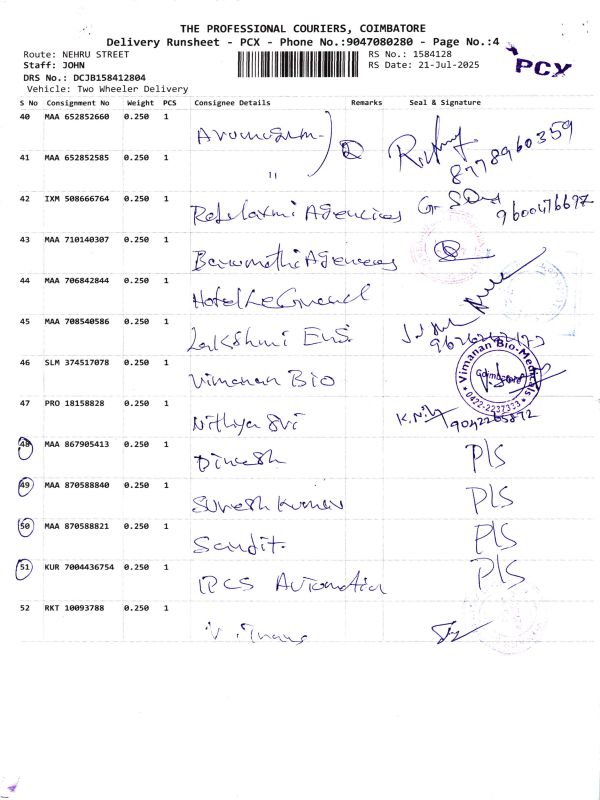 THE PROFESSIONAL COURIERS, COIMBATORE
Delivery Runsheet - PCX - Phone No.:9047080280 - Page No.:4
Route: NEHRU STREET RS No.: 1584128
Staff: JOHN RS Date: 21-Jul-2025
PCX
DRS No.: DCJB158412804
Vehicle: Two Wheeler Delivery
S No Consignment No Weight PCS Consignee Details Remarks Seal & Signature
40 MAA 652852660 0.250 1
8778960359
41 MAA 652852585 0.250 1 "
42 IXM 508666764 0.250 1 Agencies
9600476697
43 MAA 710140307 0.250 1 Agencies
44 MAA 706842844 0.250 1 Hotel
45 MAA 708540586 0.250 1 Lakshmi
46 SLM 374517078 0.250 1 Vimanan Bio
Vimanan Bio-Medicals Coimbatore 0422-2237333
47 PRO 18158828 0.250 1 Nithya Sri
9042265872
48 MAA 867905413 0.250 1 Dinesh P/S
49 MAA 870588840 0.250 1 Suresh Kumar P/S
50 MAA 870588821 0.250 1 P/S
51 KUR 7004436754 0.250 1 Automation P/S
52 RKT 10093788 0.250 1